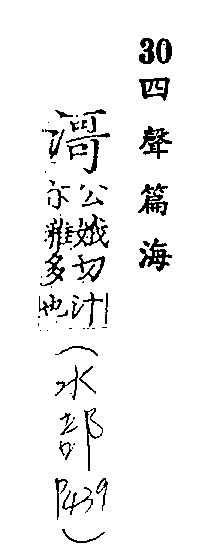 30四聲篇海
滒
公娥切汁
尒雅多也
(水部P439)